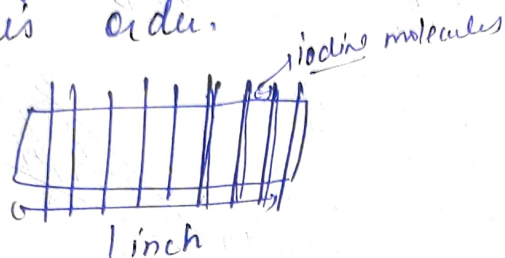 is order.
iodine molecules
1 inch